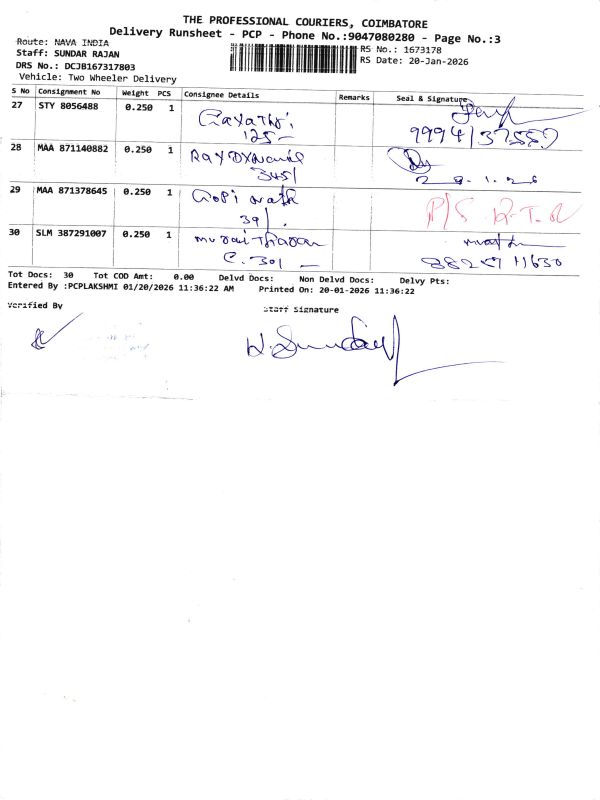 THE PROFESSIONAL COURIERS, COIMBATORE
Delivery Runsheet - PCP - Phone No.:9047080280 - Page No.:3
Route: NAVA INDIA
Staff: SUNDAR RAJAN
DRS No.: DCJB167317803
Vehicle: Two Wheeler Delivery
RS No.: 1673178
RS Date: 20-Jan-2026
S No Consignment No Weight PCS Consignee Details Remarks Seal & Signature
27 STY 8056488 0.250 1 Gayathri
125
28 MAA 871140882 0.250 1
3451
29 MAA 871378645 0.250 1 Gopi nath
391. P/S R.T.O
30 SLM 387291007 0.250 1
C.301
Tot Docs: 30 Tot COD Amt: 0.00 Delvd Docs: Non Delvd Docs: Delvy Pts:
Entered By :PCPLAKSHMI 01/20/2026 11:36:22 AM Printed On: 20-01-2026 11:36:22
Verified By Staff Signature